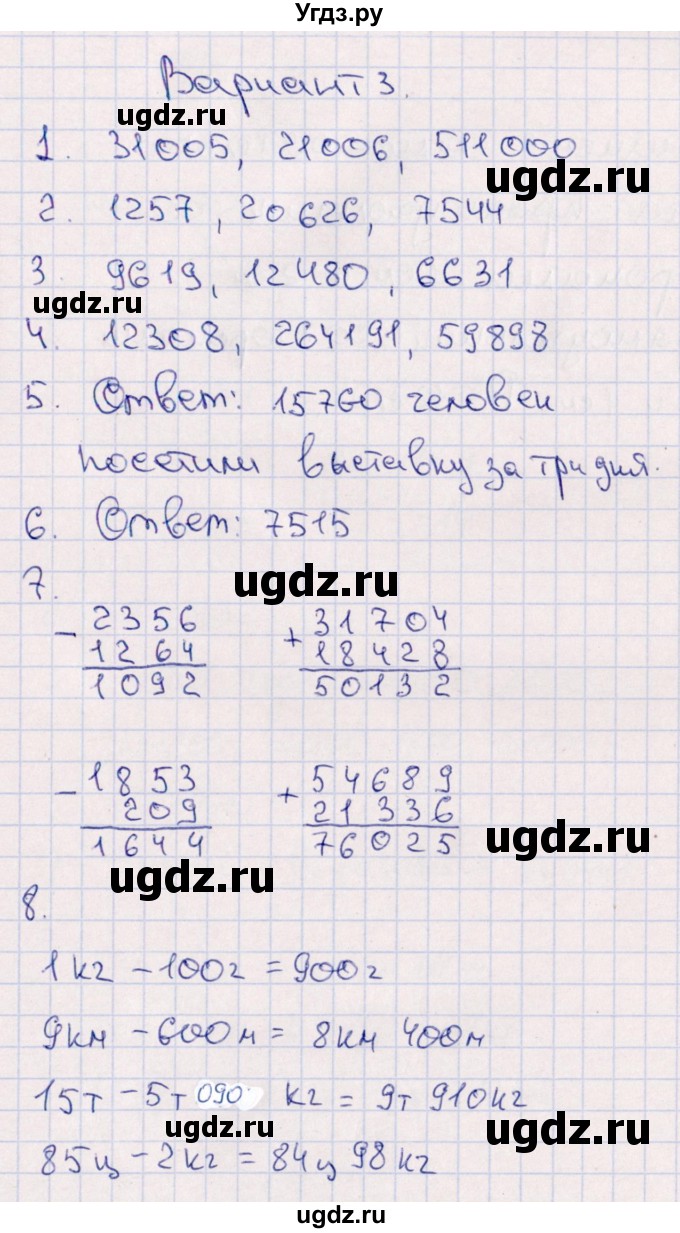 Угдз.ру
Вариант 3.
ugdz.ru
1. 31005, 21006, 511000
ugdz.ru
2. 1257, 20626, 7544
3. 9619, 12480, 6631
ugdz.ru
4. 12308, 264191, 59898
5. Ответ: 15760 человек
посетили выставку за три дня.
6. Ответ: 7515
7.
ugdz.ru
- 2356 + 31704
1264 18428
1092 50132
- 1853 + 54689
209 21336
1644 76025
ugdz.ru
ugdz.ru
8.
1 кг - 100 г = 900 г
9 км - 600 м = 8 км 400 м
15 т - 5 т 090 кг = 9 т 910 кг
ugdz.ru
ugdz.ru
85 ц - 2 кг = 84 ц 98 кг
ugdz.ru